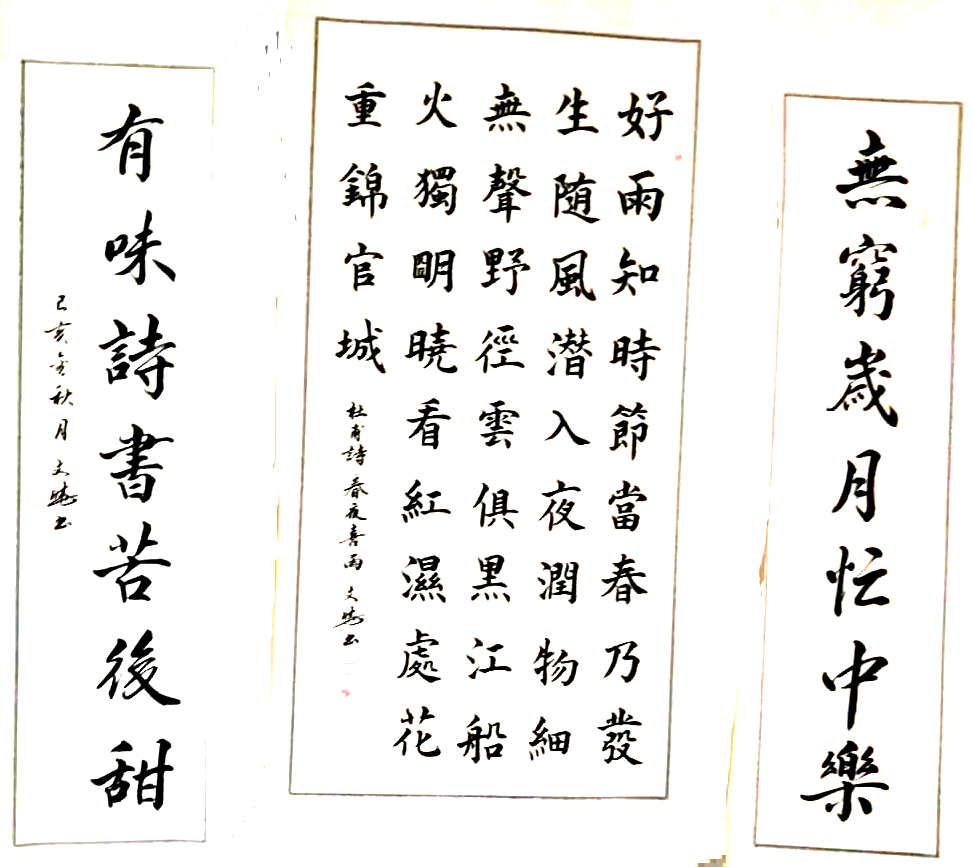 無窮歲月忙中樂
好雨知時節當春乃發
生随風潜入夜潤物細
無聲野徑雲俱黑江船
火獨眀曉看紅濕處花
重錦官城
杜甫詩春夜喜雨 文書
有味詩書苦後甜
己亥金秋月 文書